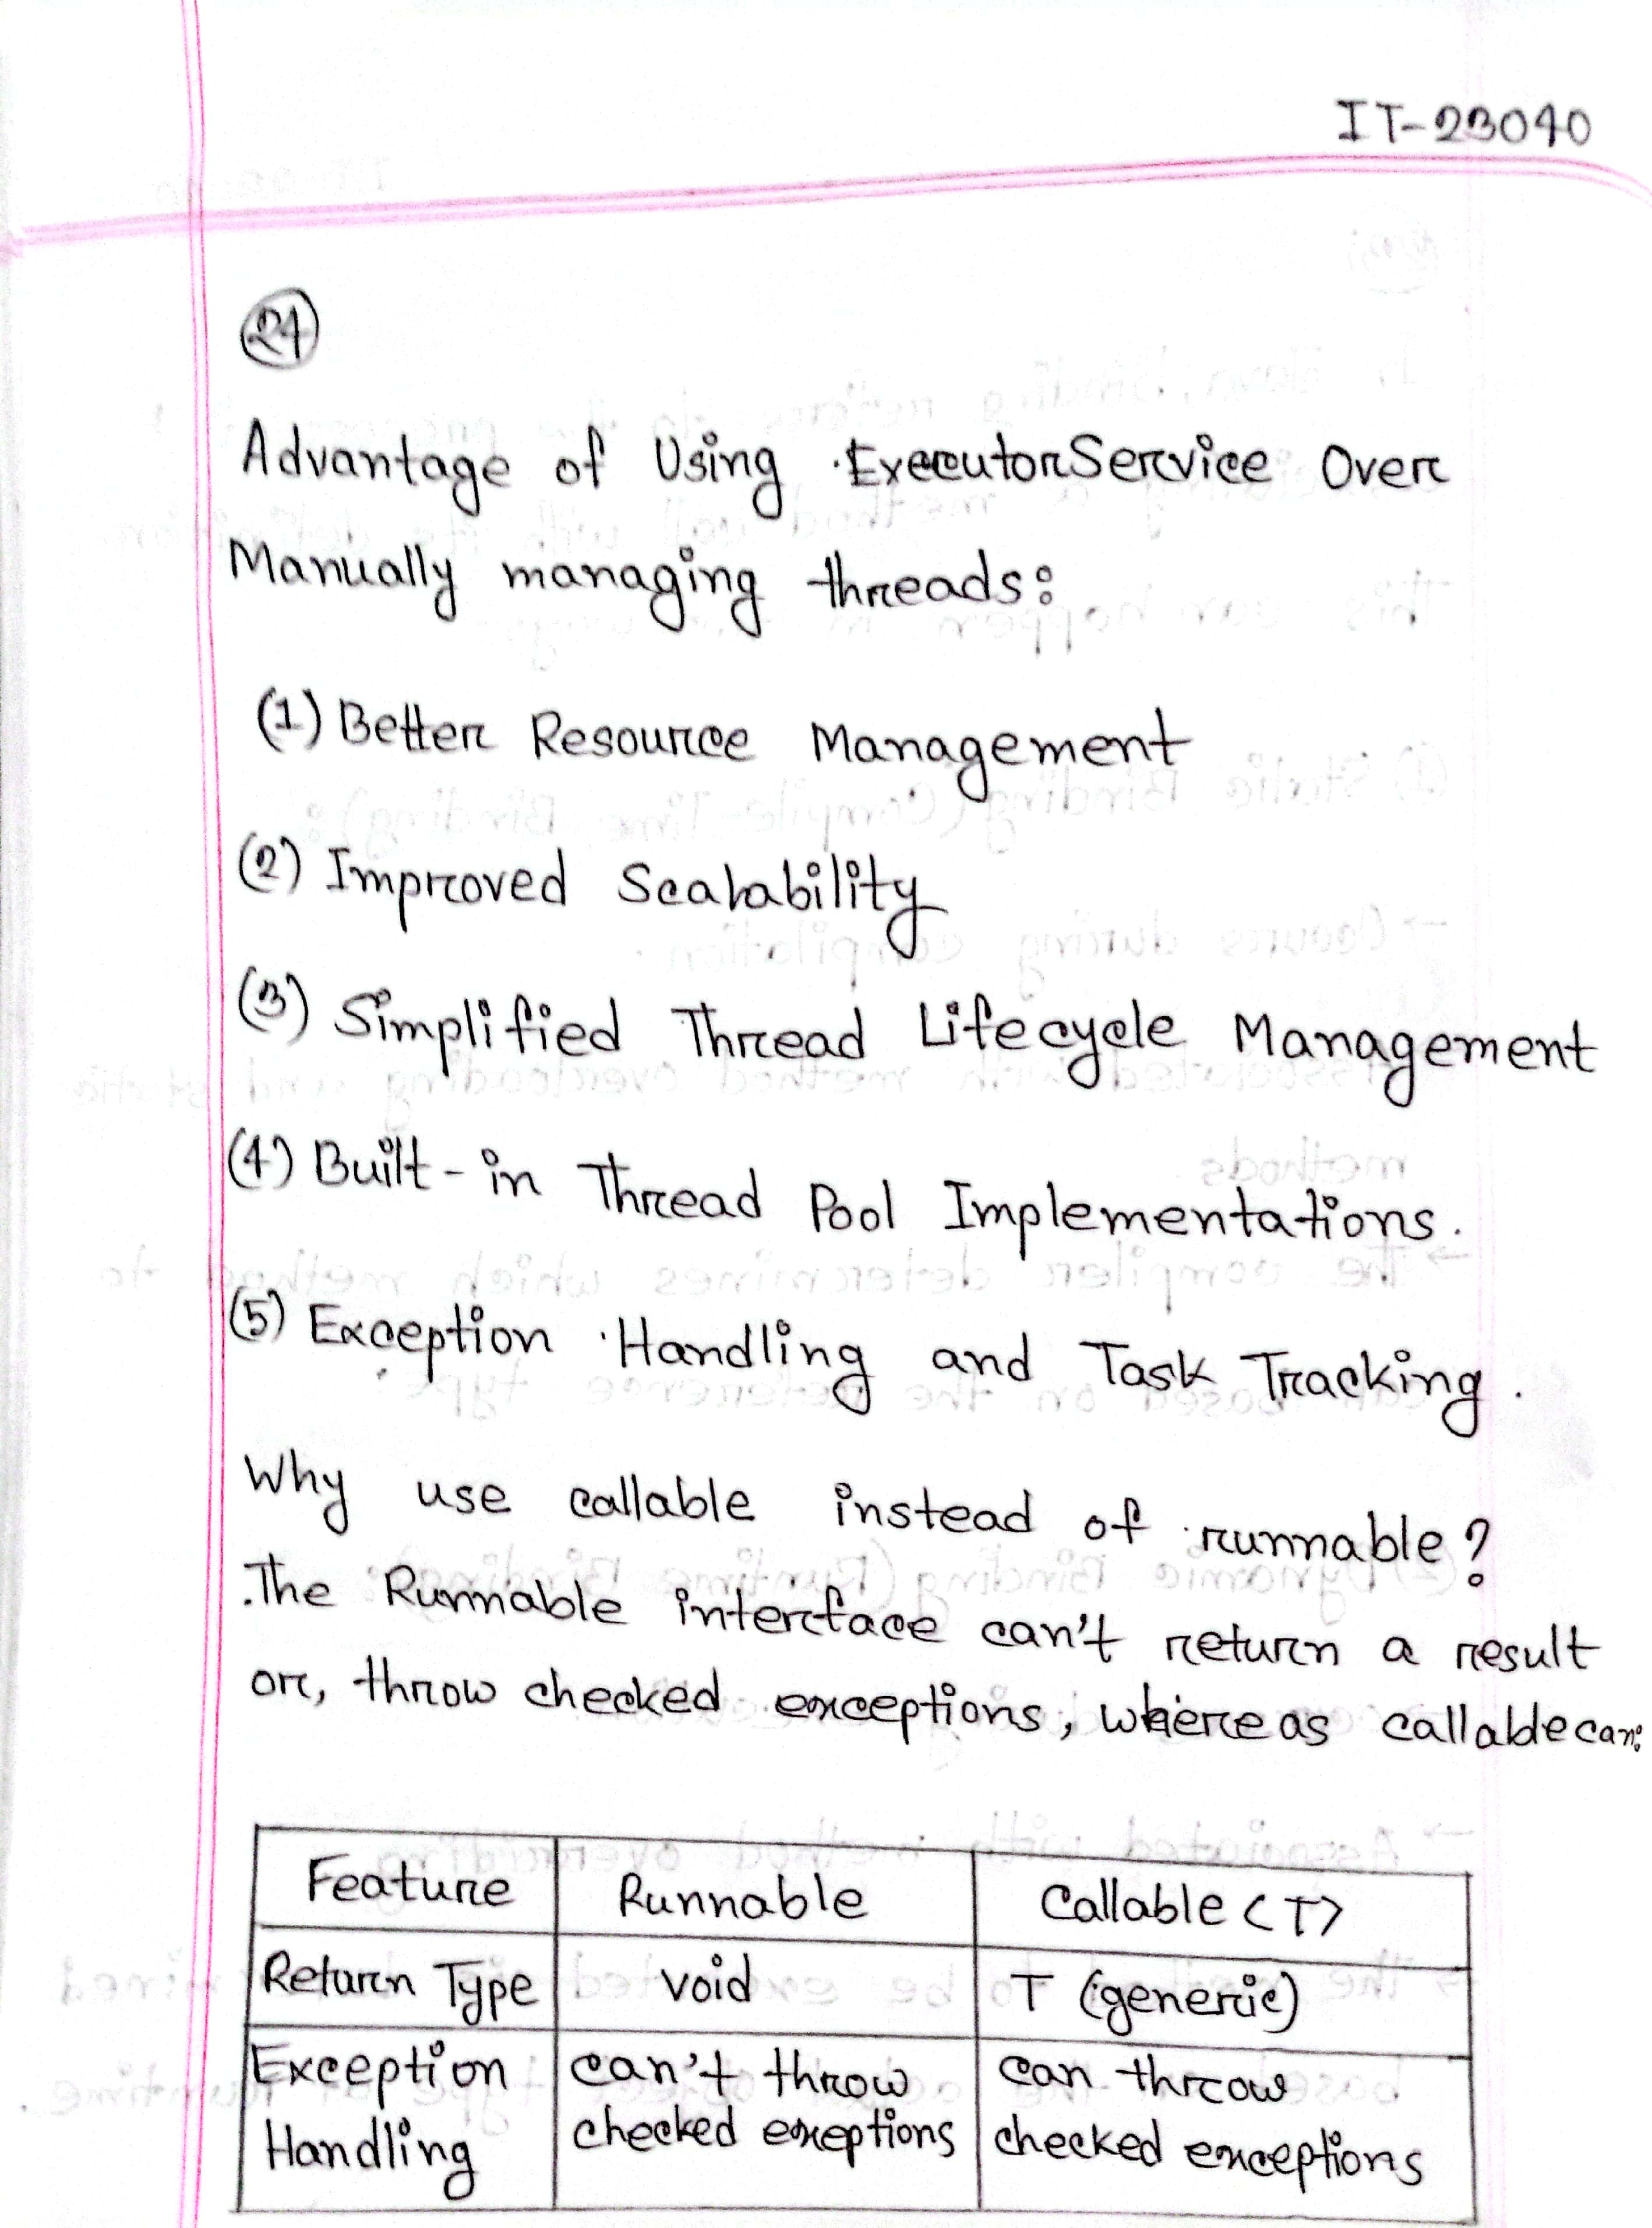 IT-23040
24
Advantage of Using ExecutorService Over
Manually managing threads:
(1) Better Resource Management
(2) Improved Scalability
(3) Simplified Thread Lifecycle Management
(4) Built-in Thread Pool Implementations.
(5) Exception Handling and Task Tracking.
Why use callable instead of runnable?
The Runnable interface can't return a result
or, throw checked exceptions, whereas callable can:
Feature Runnable Callable <T>
Return Type void T (generic)
Exception Handling can't throw checked exceptions can throw checked exceptions